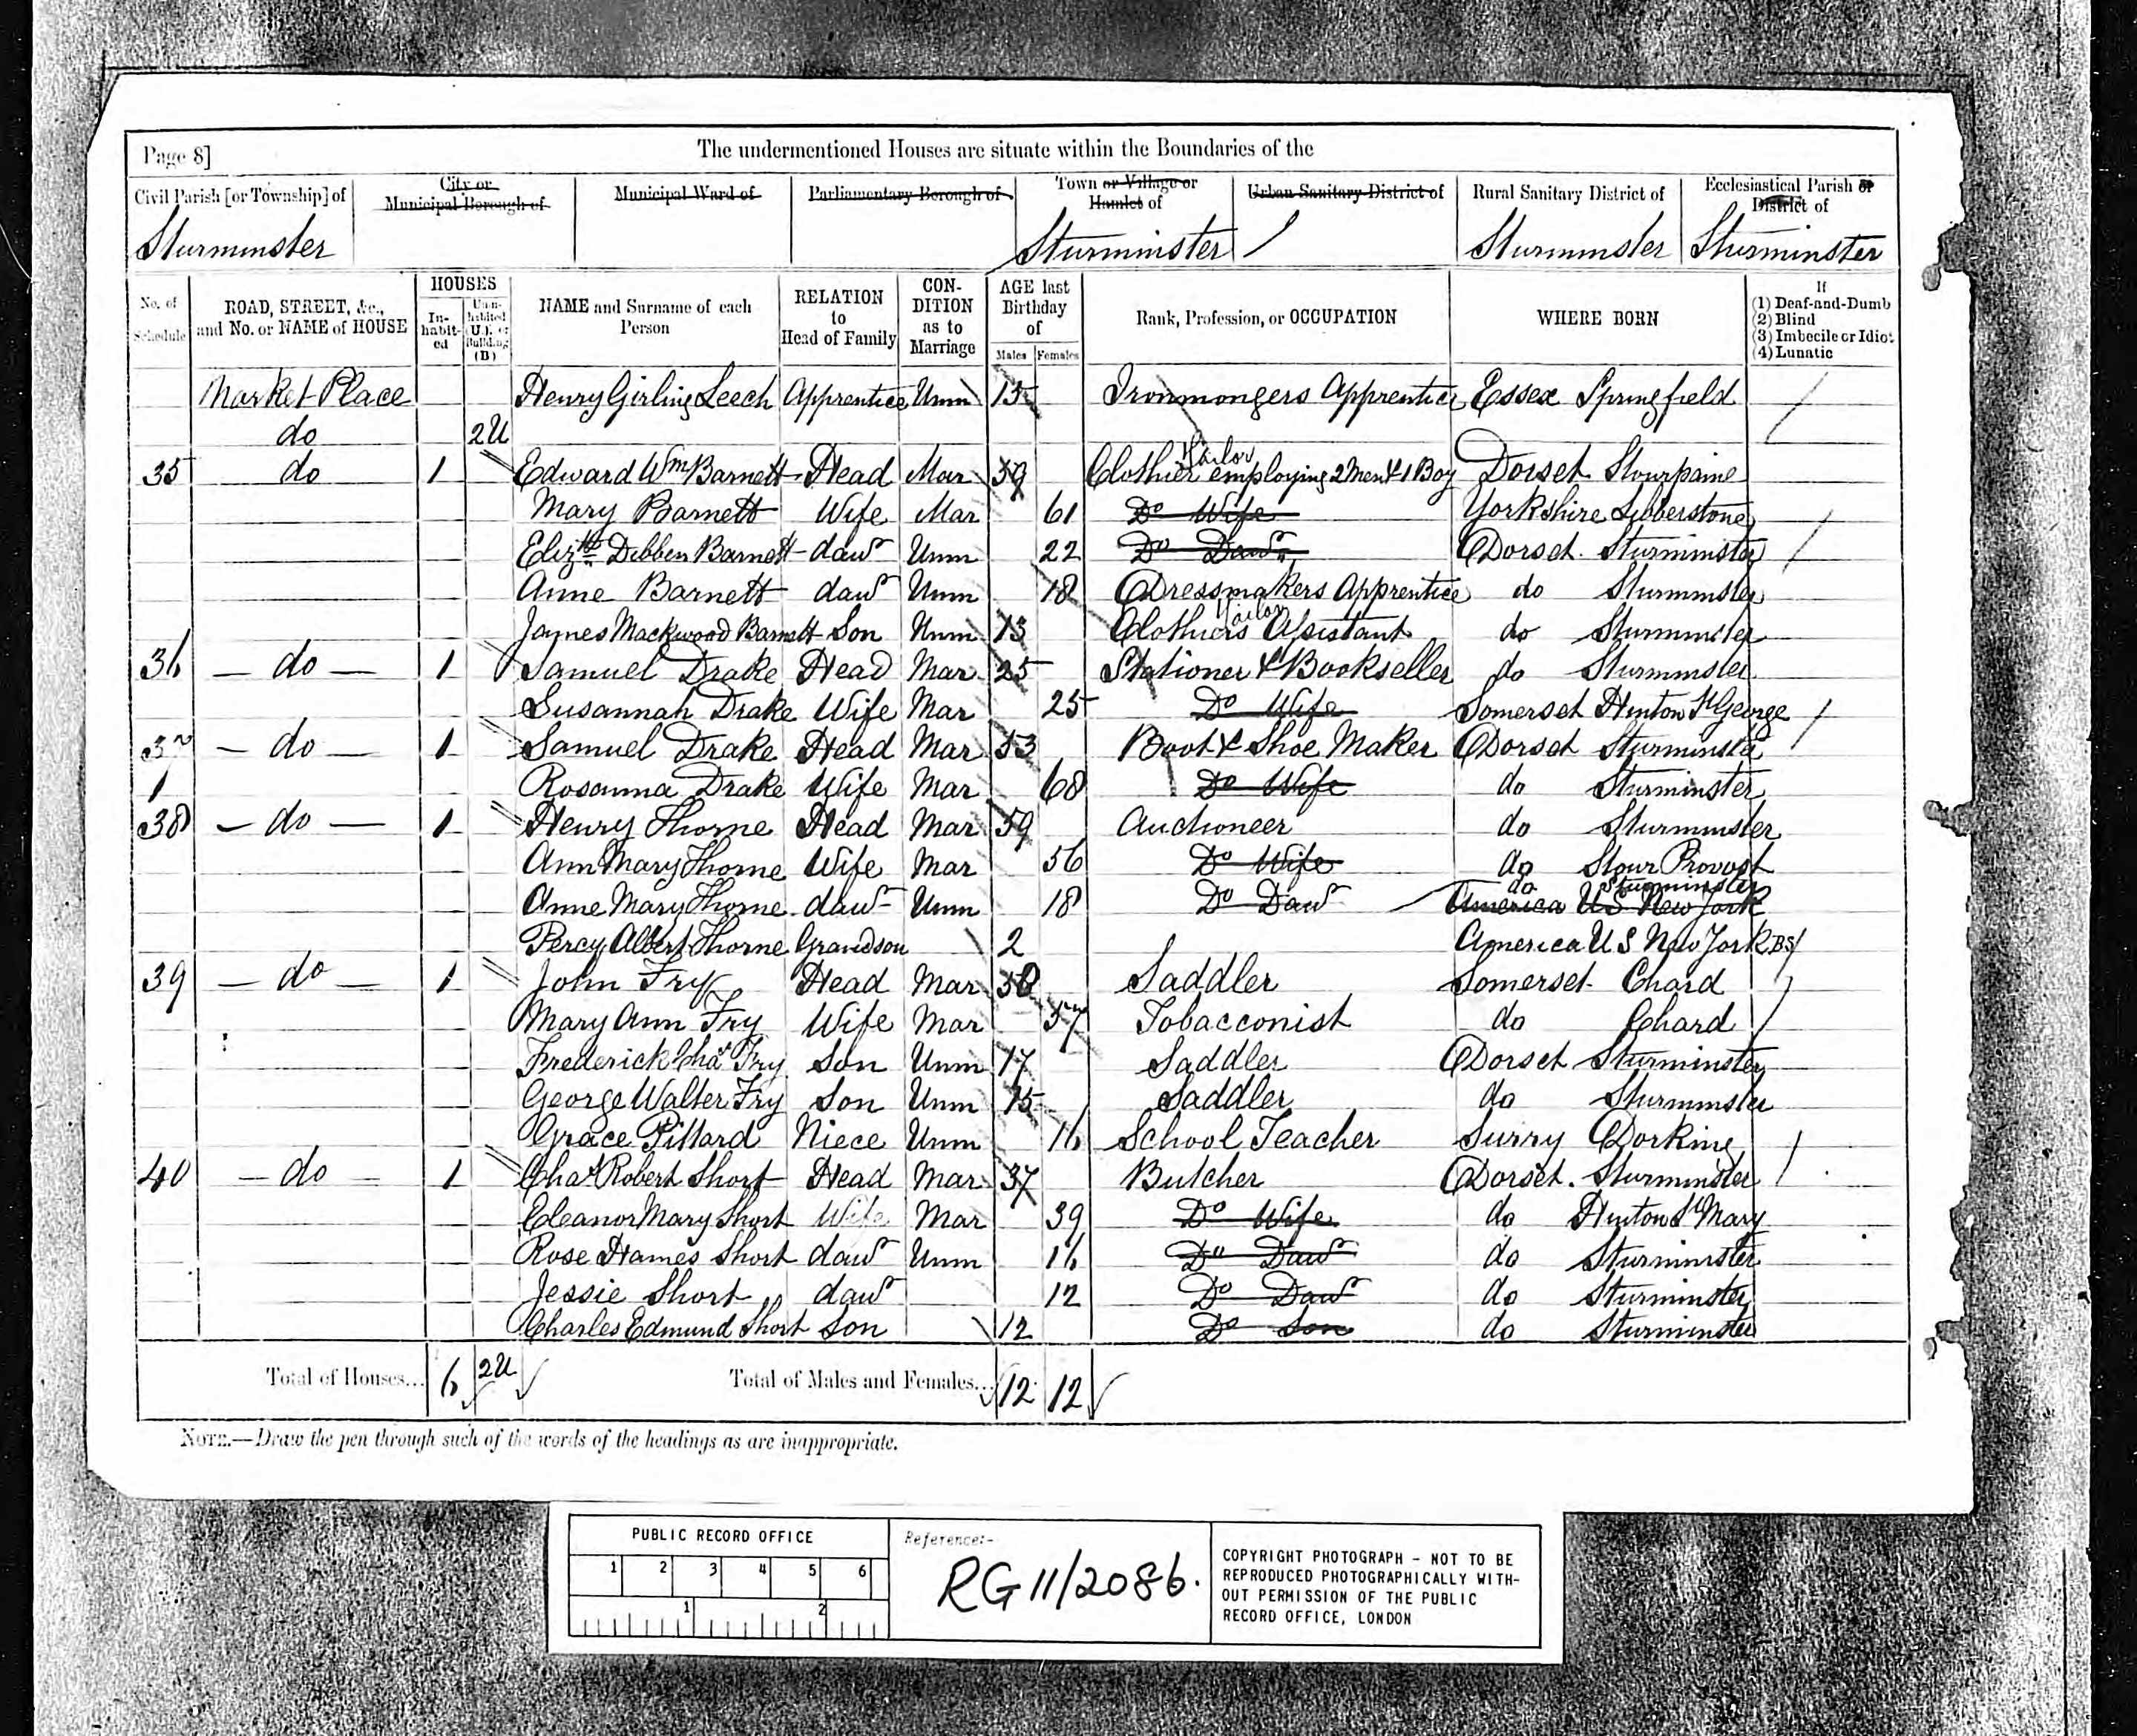 Page 8]
The undermentioned Houses are situate within the Boundaries of the
Civil Parish [or Township] of
City or Municipal Borough of
Municipal Ward of
Parliamentary Borough of
Town or Village or Hamlet of
Urban Sanitary District of
Rural Sanitary District of
Ecclesiastical Parish or District of
Sturminster Sturminster / Sturminster Sturminster
No. of Schedule
ROAD, STREET, &c., and No. or NAME of HOUSE
HOUSES
In-habit-ed
Unin-habited (U.), or Building (B)
NAME and Surname of each Person
RELATION to Head of Family
CON-DITION as to Marriage
AGE last Birthday of
Males Females
Rank, Profession, or OCCUPATION
WHERE BORN
If
(1) Deaf-and-Dumb
(2) Blind
(3) Imbecile or Idiot
(4) Lunatic
Market Place Henry Girling Leech Apprentice Unm 15 Ironmongers Apprentice Essex Springfield
do 2U
35 do 1 Edward Wm Barnett Head Mar 59 Clothier Tailor employing 2 Men & 1 Boy Dorset Stourpaine
Mary Barnett Wife Mar 61 Do Wife Yorkshire
Elizth Dibben Barnett daur Unm 22 Do Daur Dorset Sturminster
Anne Barnett daur Unm 18 Dressmakers Apprentice do Sturminster
James Mackwood Barnett Son Unm 13 Clothiers Tailor Asistant do Sturminster
36 — do — 1 Samuel Drake Head Mar 25 Stationer & Bookseller do Sturminster
Susannah Drake Wife Mar 25 Do Wife Somerset Hinton St George
37 — do — 1 Samuel Drake Head Mar 53 Boot & Shoe Maker Dorset Sturminster
Rosanna Drake Wife Mar 68 Do Wife do Sturminster
38 — do — 1 Henry Thorne Head Mar 59 Auctioneer do Sturminster
Ann Mary Thorne Wife Mar 56 Do Wife do Stour Provost
do Sturminster
Anne Mary Thorne daur Unm 18 Do Daur America US New York
Percy Albert Thorne Grandson 2 America U S New York BS
39 — do — 1 John Fry Head Mar 50 Saddler Somerset Chard
Mary Ann Fry Wife Mar 57 Tobacconist do Chard
Frederick Chas Fry Son Unm 17 Saddler Dorset Sturminster
George Walter Fry Son Unm 15 Saddler do Sturminster
Grace Pittard Niece Unm 16 School Teacher Surry Dorking
40 — do — 1 Chas Robert Short Head Mar 37 Butcher Dorset. Sturminster
Eleanor Mary Short Wife Mar 39 Do Wife do Hinton St Mary
Rose Hames Short daur Unm 16 Do Daur do Sturminster
Jessie Short daur 12 Do Daur do Sturminster
Charles Edmund Short Son 12 Do Son do Sturminster
Total of Houses... 6 2U Total of Males and Females... 12 12
NOTE.—Draw the pen through such of the words of the headings as are inappropriate.
PUBLIC RECORD OFFICE
1 2 3 4 5 6
1 2
Reference:-
RG 11/2086.
COPYRIGHT PHOTOGRAPH - NOT TO BE
REPRODUCED PHOTOGRAPHICALLY WITH-
OUT PERMISSION OF THE PUBLIC
RECORD OFFICE, LONDON